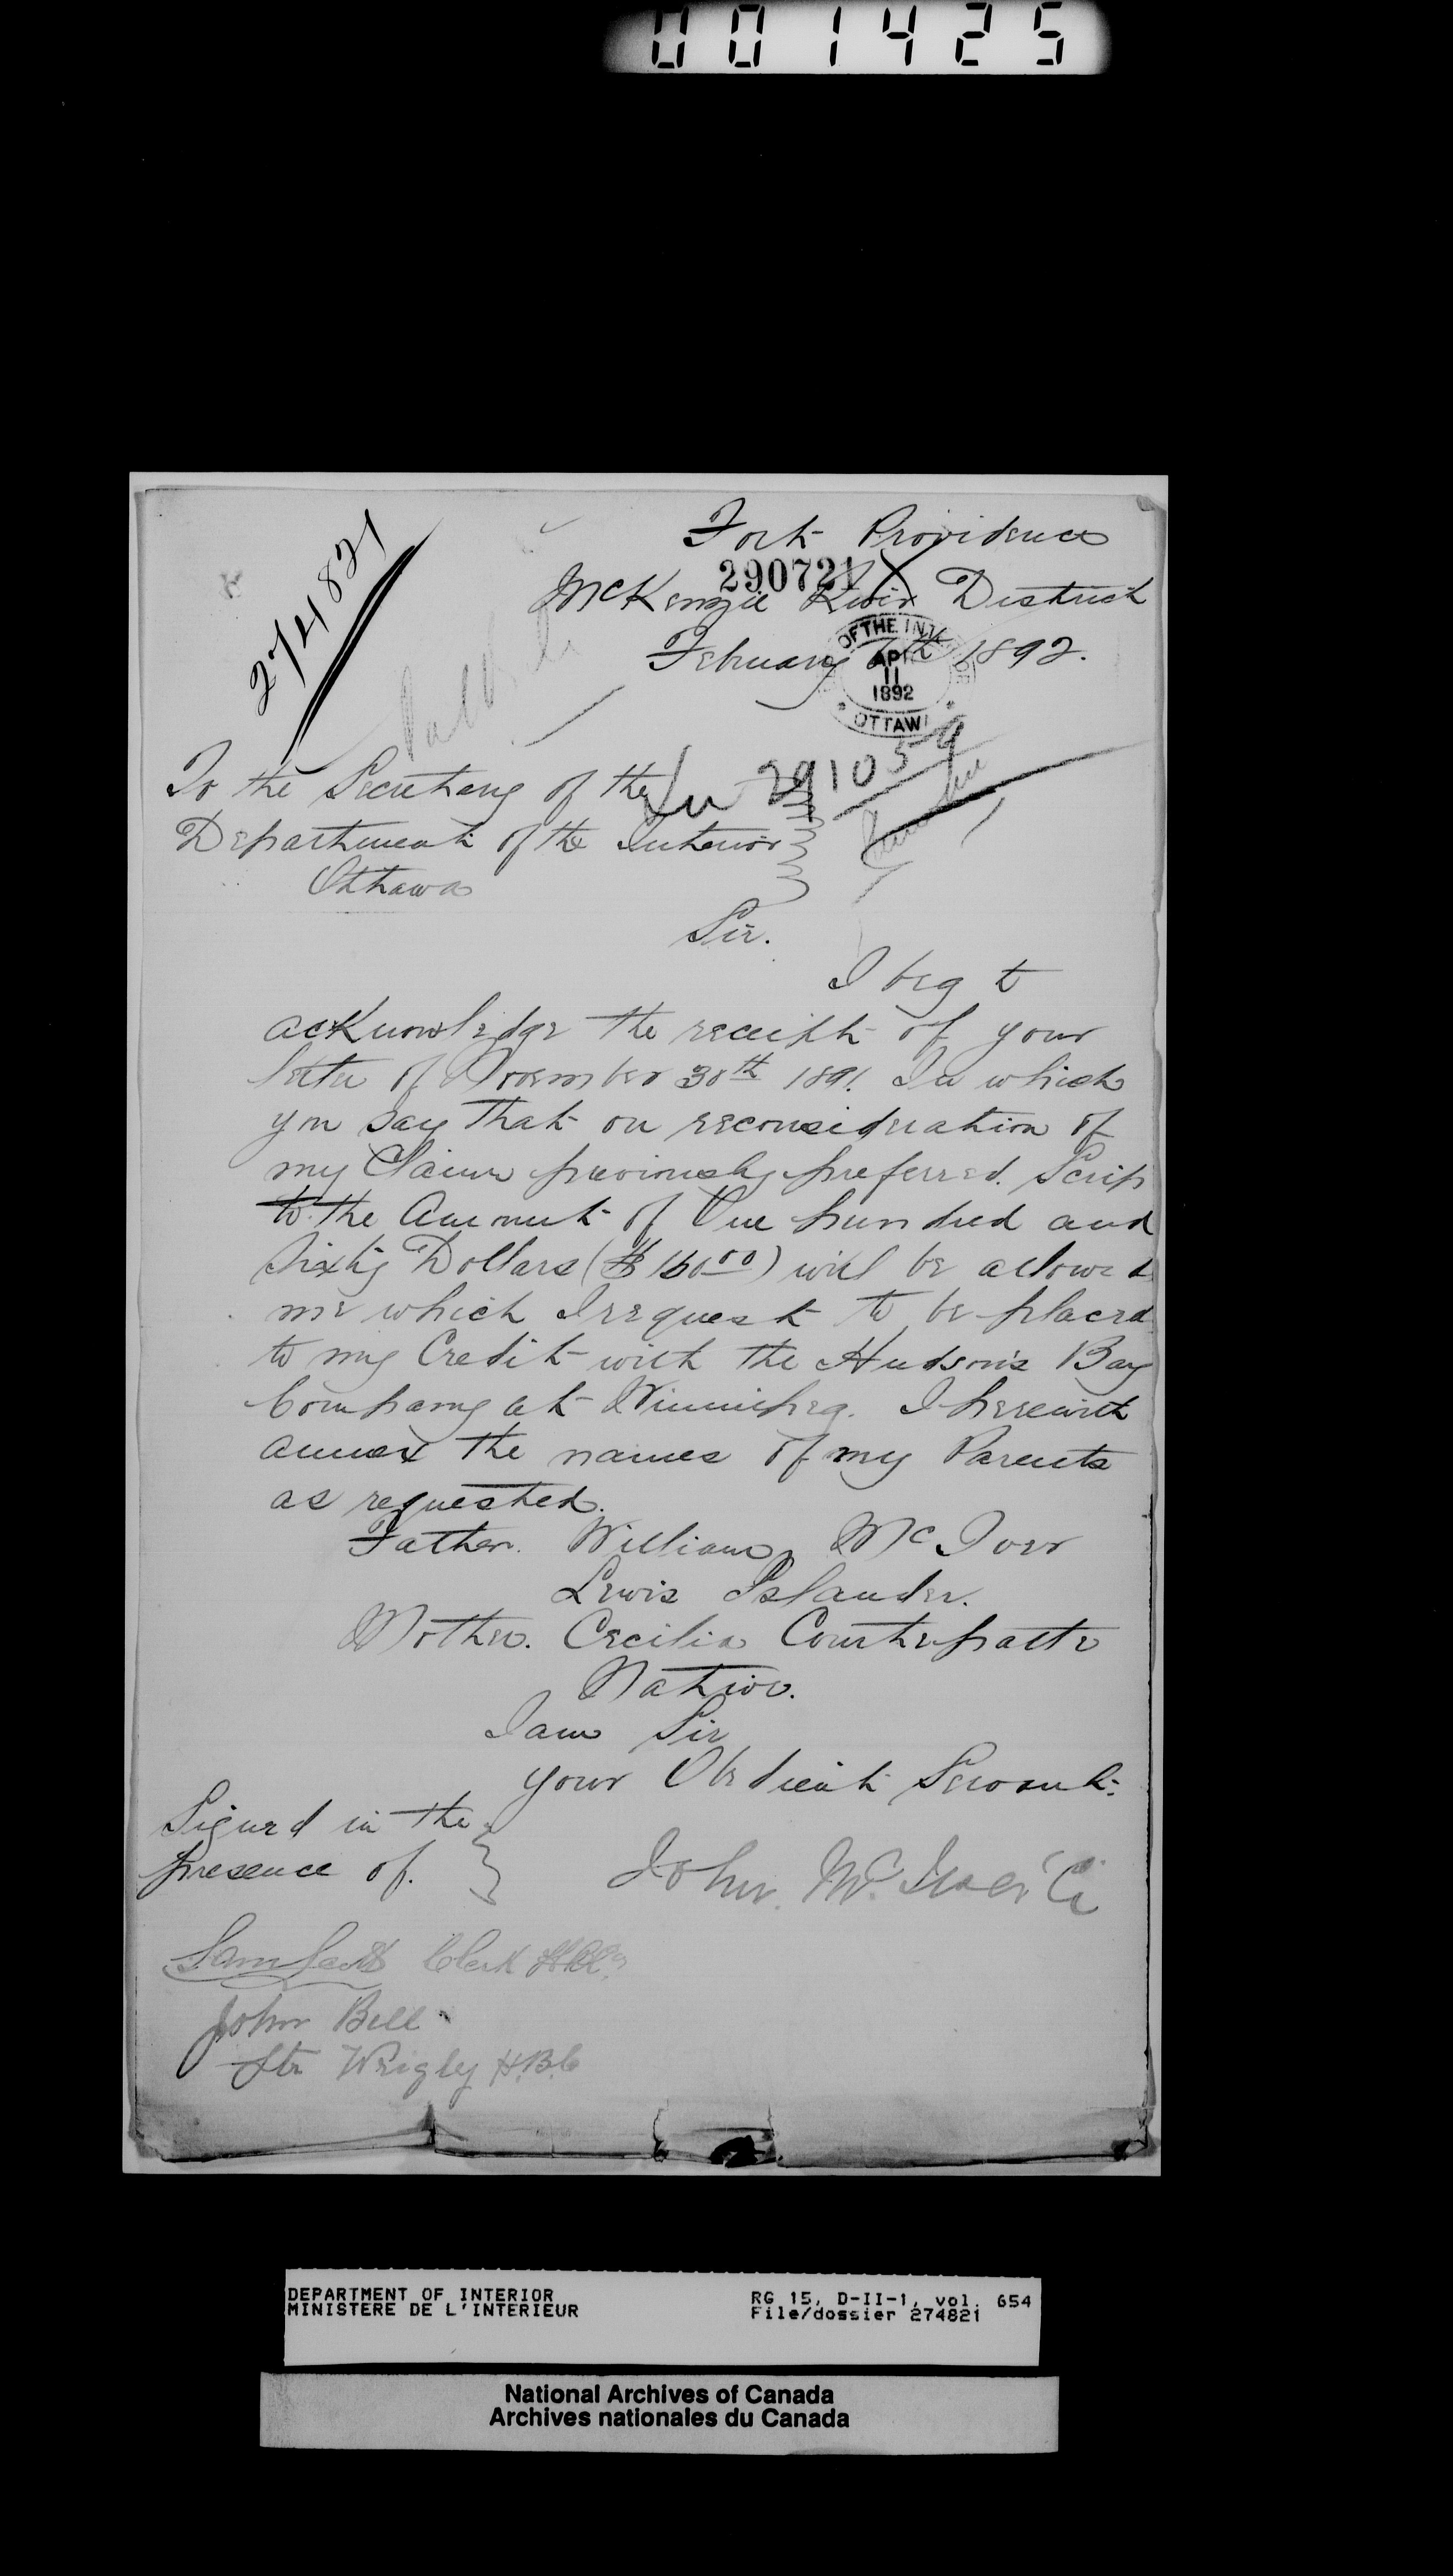 001425
274821
Fort Providence
290721
McKenzie River District
February 6th 1892.
OF THE INTE
APR
11
1892
OTTAWA
In 291059
To the Secretary of the
Department of the Interior
Ottawa
Sir.
I beg to
acknowledge the receipt of your
letter of November 30th 1891. In which
you say that on reconsideration of
my Claim previously preferred. Scrip
to the Amount of One hundred and
Sixty Dollars ($160.00) will be allowed
me which I request to be placed
to my Credit with the Hudson's Bay
Company at Winnipeg. I herewith
annex the names of my Parents
as requested.
Father. William McIver
Lewis Islander.
Mother. Cecilia Courtepatte
Native.
I am Sir
your Obedient Servant.
Signed in the
presence of.
John. Mc.
Clerk H.B.Co
John Bell
Str Wrigley H.B.Co
DEPARTMENT OF INTERIOR
MINISTERE DE L'INTERIEUR
RG 15, D-II-1, vol. 654
File/dossier 274821
National Archives of Canada
Archives nationales du Canada